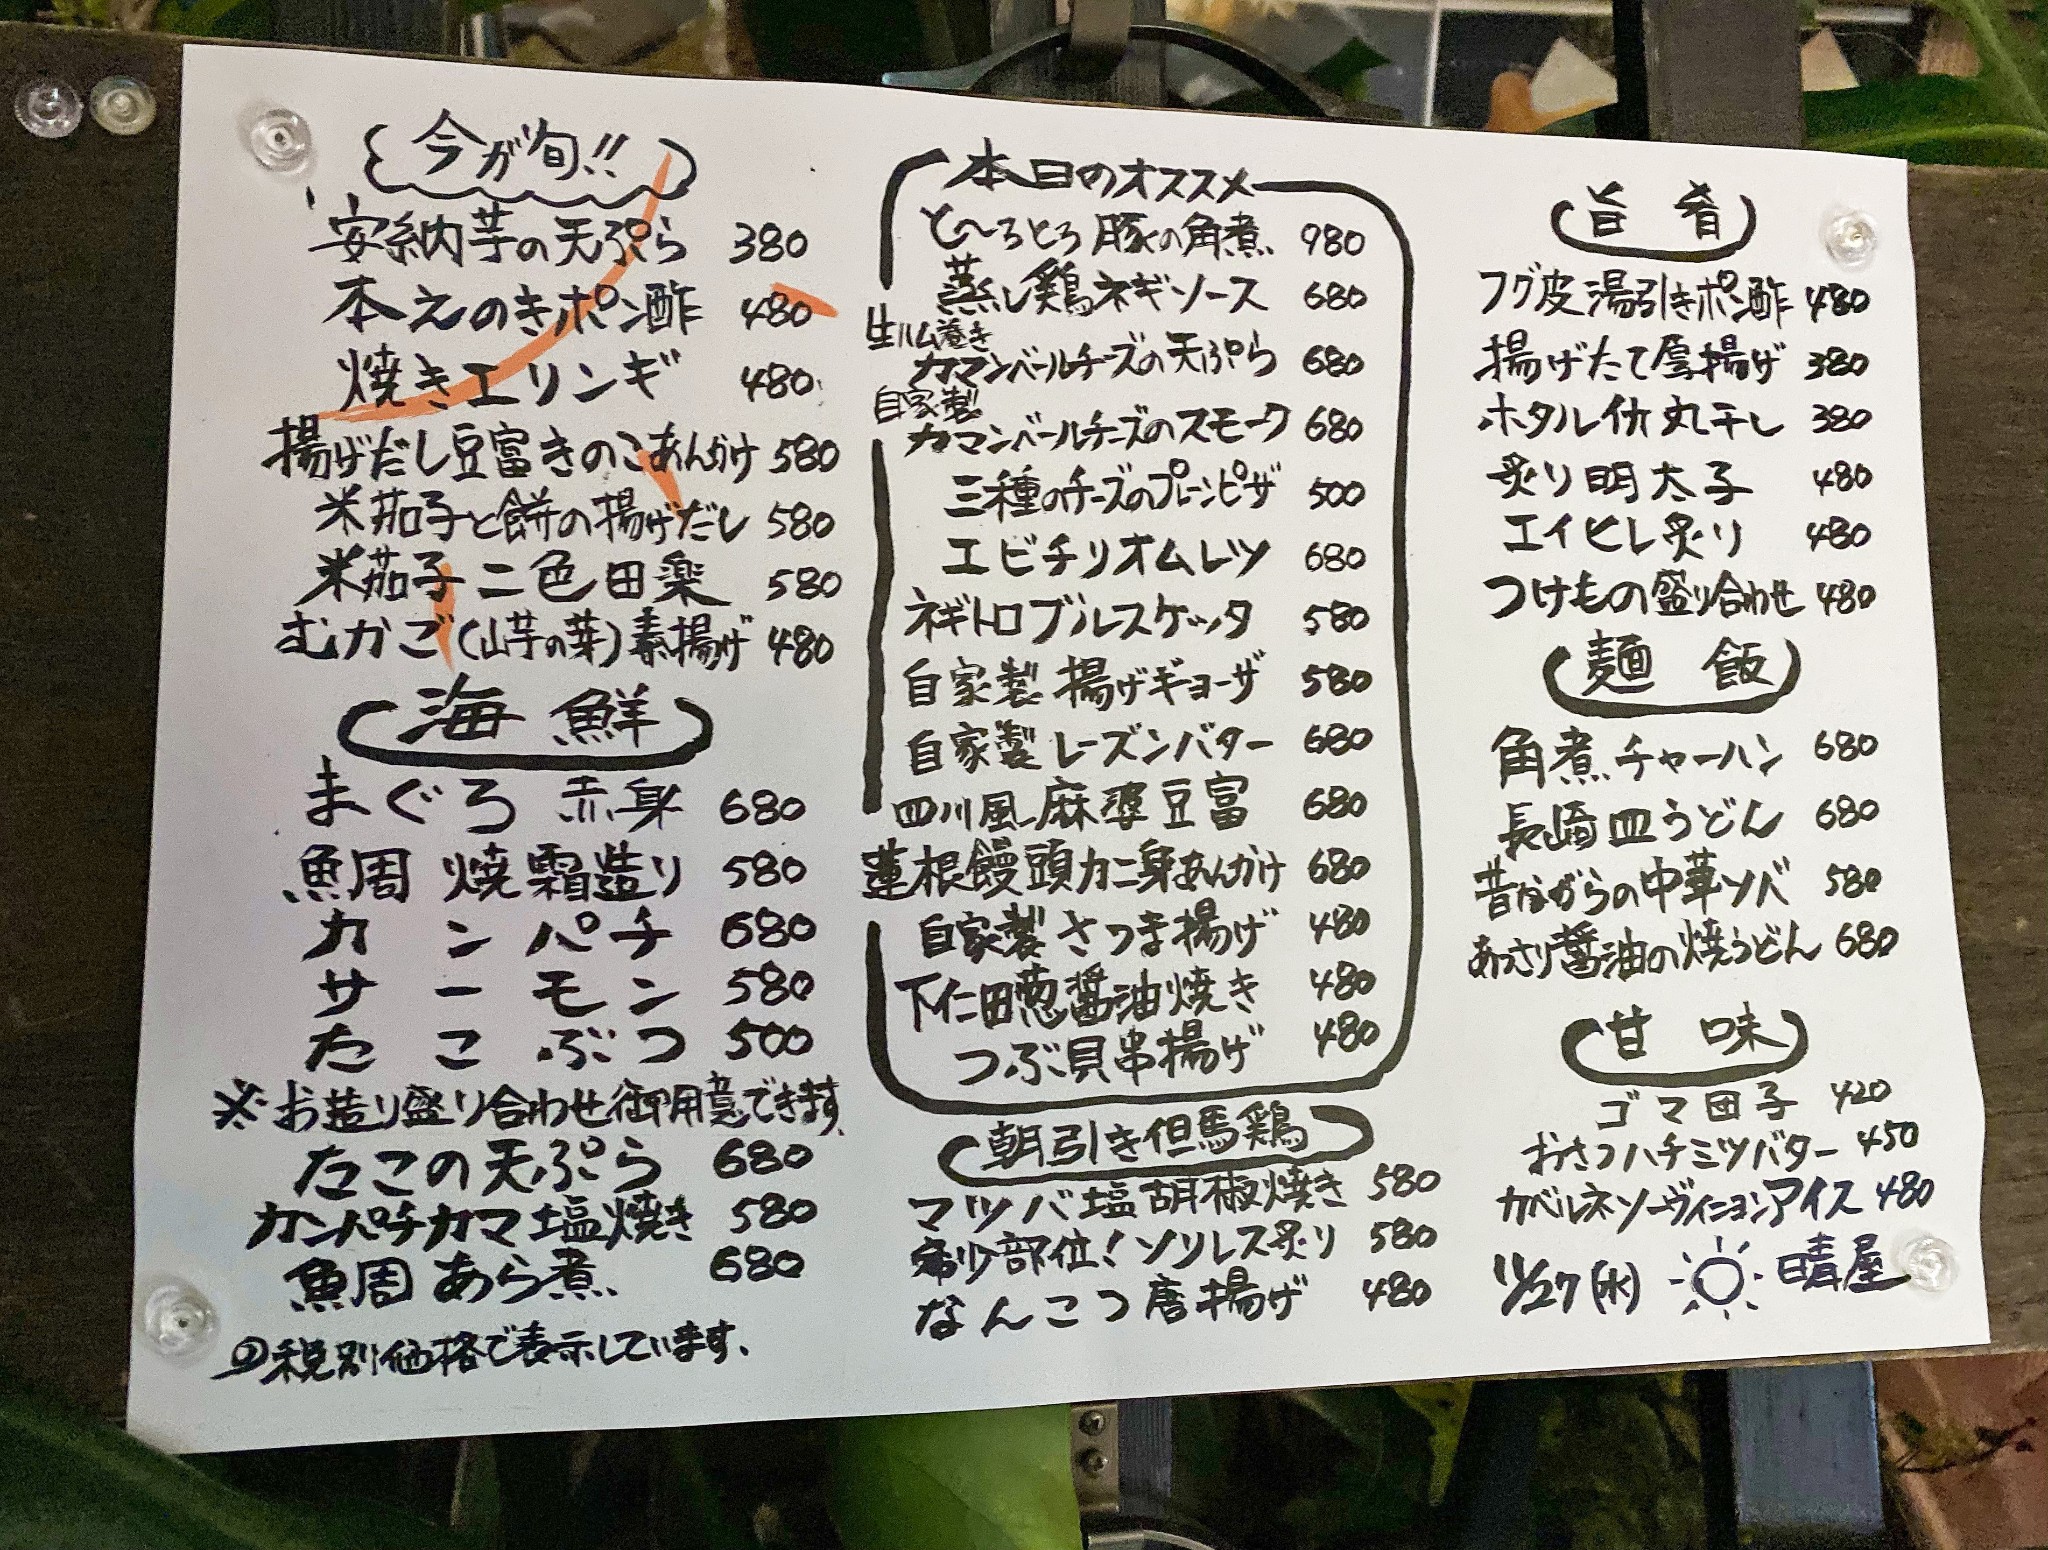 今が旬!!
安納芋の天ぷら 380
本えのきポン酢 480
焼きエリンギ 480
揚げだし豆富きのこあんかけ 580
米茄子と餅の揚げだし 580
米茄子二色田楽 580
むかご(山芋の芽)素揚げ 480
海鮮
まぐろ 赤身 680
鯛 焼霜造り 580
カンパチ 680
サーモン 580
たこぶつ 500
※お造り盛り合わせ御用意できます
たこの天ぷら 680
カンパチカマ塩焼き 580
鯛あら煮 680
税別価格で表示しています。
本日のオススメ
と〜ろとろ豚の角煮 980
蒸し鶏ネギソース 680
生ハム巻き
カマンベールチーズの天ぷら 680
自家製
カマンベールチーズのスモーク 680
三種のチーズのプレーンピザ 500
エビチリオムレツ 680
ネギトロブルスケッタ 580
自家製揚げギョーザ 580
自家製レーズンバター 680
四川風麻婆豆富 680
蓮根饅頭カニ身あんかけ 680
自家製さつま揚げ 480
下仁田葱醤油焼き 480
つぶ貝串揚げ 480
朝引き但馬鶏
マツバ塩胡椒焼き 580
希少部位!ソリレス炙り 580
なんこつ唐揚げ 480
旨肴
フグ皮湯引きポン酢 480
揚げたて厚揚げ 380
ホタルイカ丸干し 380
炙り明太子 480
エイヒレ炙り 480
つけもの盛り合わせ 480
麺飯
角煮チャーハン 680
長崎皿うどん 680
昔ながらの中華ソバ 580
あっさり醤油の焼うどん 680
甘味
ゴマ団子 420
おさつハチミツバター 450
カベルネソーヴィニヨンアイス 480
11/27(水) 晴屋